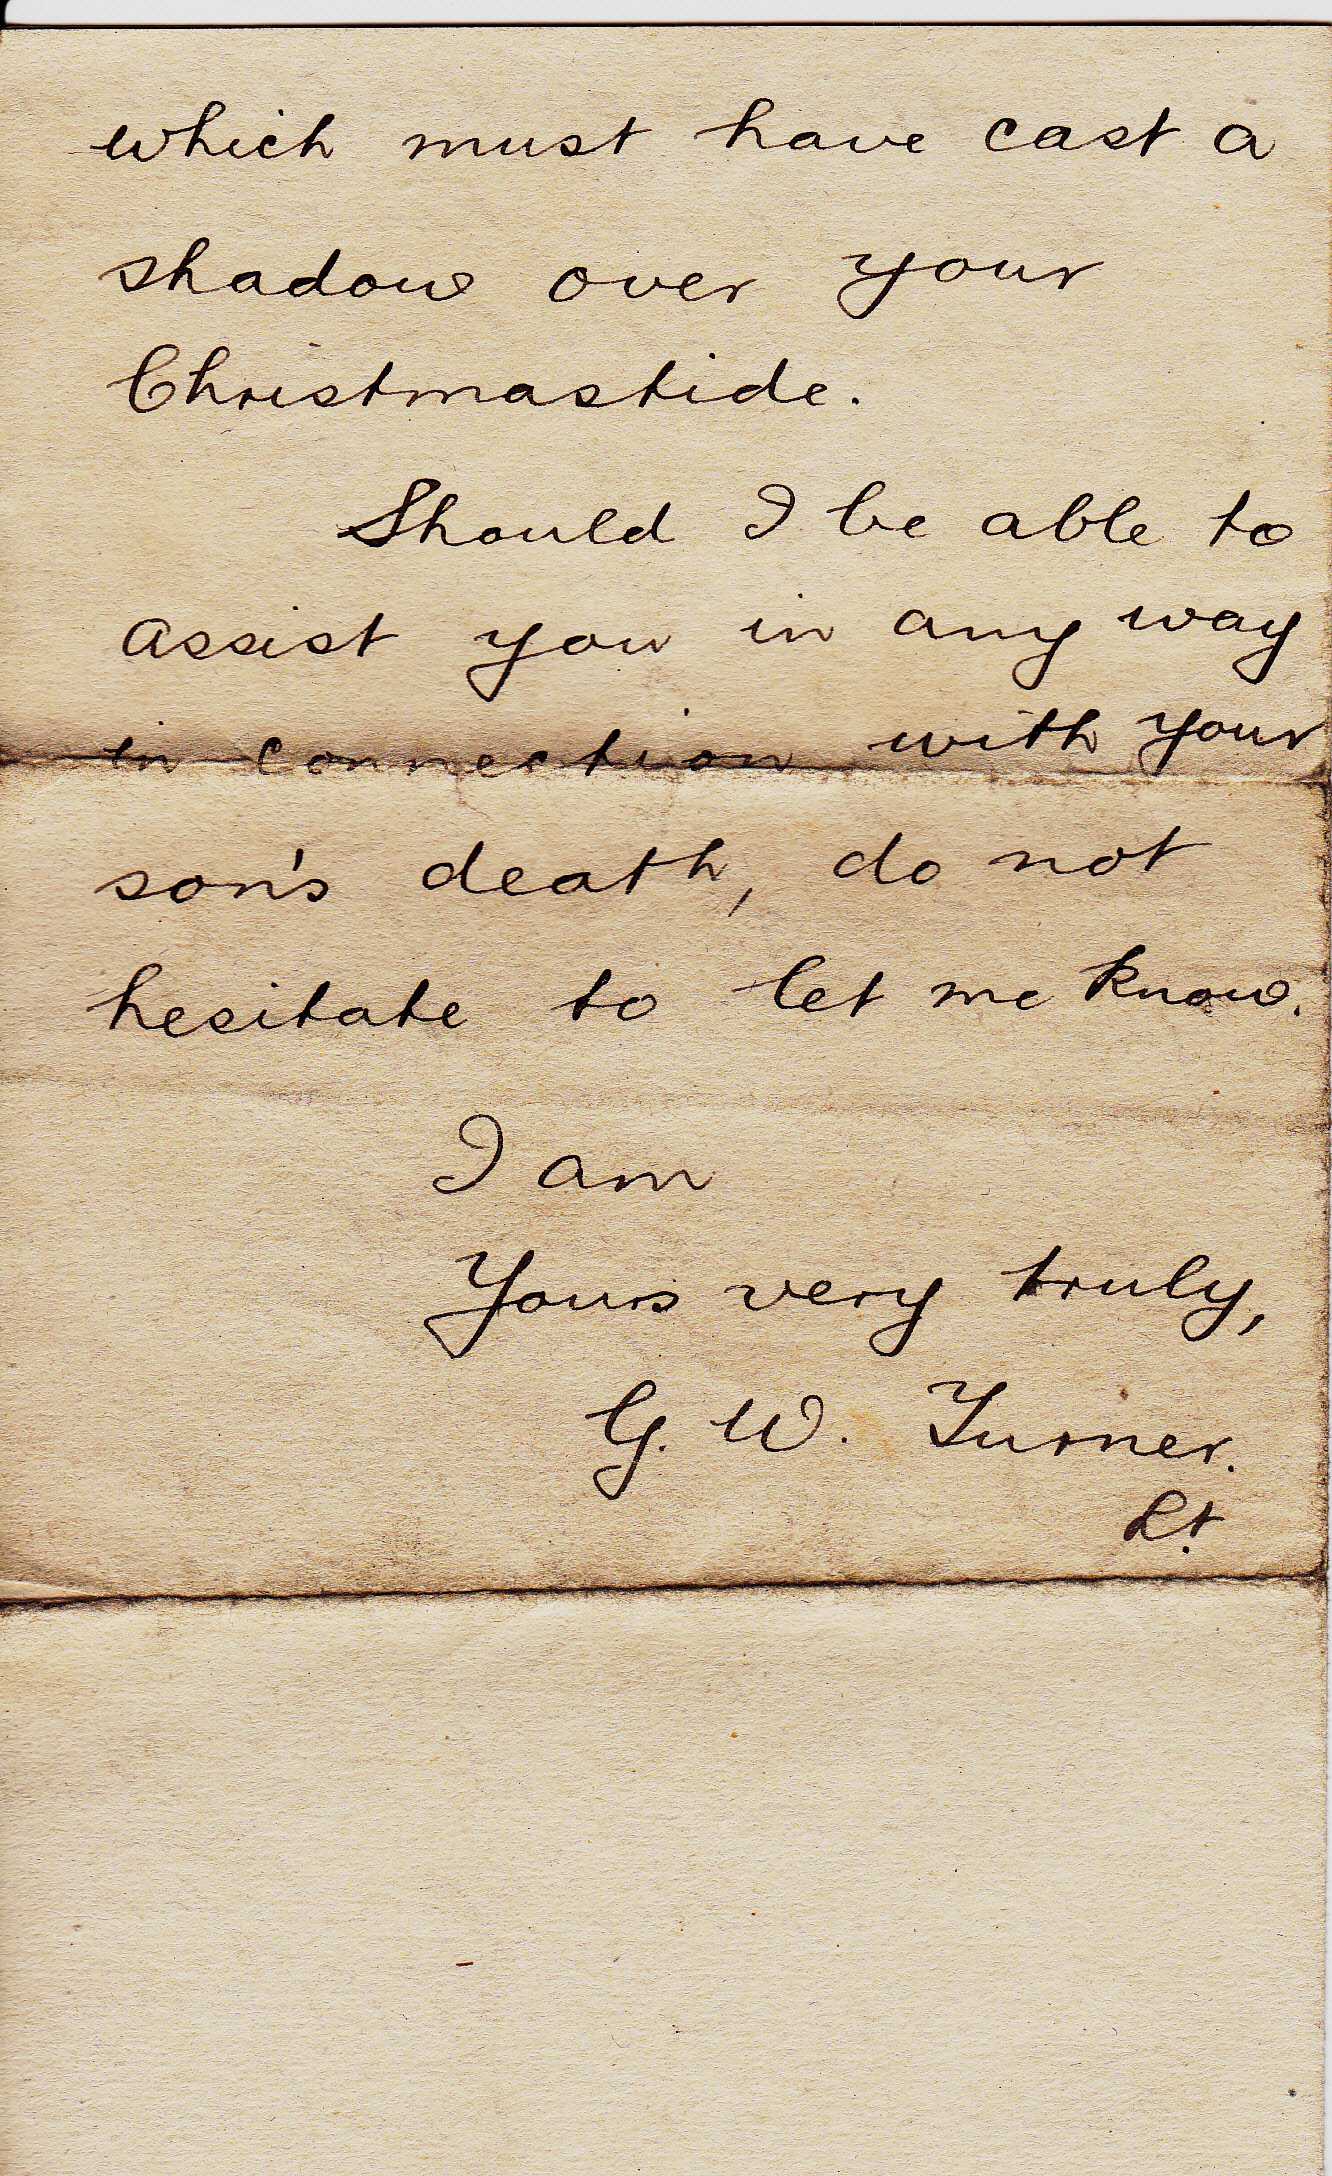 which must have cast a
shadow over your
Christmastide.
Should I be able to
assist you in any way
in connection with your
son's death, do not
hesitate to let me know.
I am
Yours very truly,
G. W. Turner.
Lt.